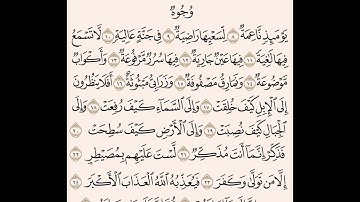 وُجُوهٌ
يَوْمَئِذٍ نَّاعِمَةٌ ٨ لِّسَعْيِهَا رَاضِيَةٌ ٩ فِي جَنَّةٍ عَالِيَةٍ ١٠ لَّا تَسْمَعُ
فِيهَا لَاغِيَةً ١١ فِيهَا عَيْنٌ جَارِيَةٌ ١٢ فِيهَا سُرُرٌ مَّرْفُوعَةٌ ١٣ وَأَكْوَابٌ
مَّوْضُوعَةٌ ١٤ وَنَمَارِقُ مَصْفُوفَةٌ ١٥ وَزَرَابِيُّ مَبْثُوثَةٌ ١٦ أَفَلَا يَنظُرُونَ
إِلَى الْإِبِلِ كَيْفَ خُلِقَتْ ١٧ وَإِلَى السَّمَاءِ كَيْفَ رُفِعَتْ ١٨ وَإِلَى
الْجِبَالِ كَيْفَ نُصِبَتْ ١٩ وَإِلَى الْأَرْضِ كَيْفَ سُطِحَتْ ٢٠
فَذَكِّرْ إِنَّمَا أَنتَ مُذَكِّرٌ ٢١ لَّسْتَ عَلَيْهِم بِمُصَيْطِرٍ ٢٢
إِلَّا مَن تَوَلَّىٰ وَكَفَرَ ٢٣ فَيُعَذِّبُهُ اللَّهُ الْعَذَابَ الْأَكْبَرَ ٢٤